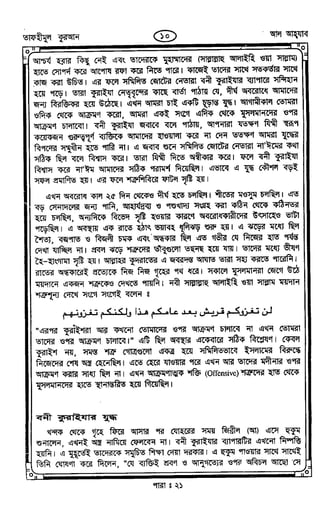 তাফহীমুল কুরআন
১০
আল আহযাব
আশ্চর্য হবার কিছু নেই এবং তাদেরকে মুহাম্মাদের (সাল্লাল্লাহু আলাইহি ওয়া সাল্লাম)
হাতে সোপর্দ করে আপোষ রফা করে নিতে পারে। কাজেই তাদের সাথে সতর্কতার সাথে
কাজ করা উচিত। এর ফলে সম্মিলিত জোটের নেতারা বনী কুরাইযার ব্যাপারে সন্দিহান
হয়ে পড়ে। তারা কুরাইযা নেতৃবৃন্দের কাছে বার্তা পাঠায় যে, দীর্ঘ অবরোধে আমাদের
জন্য বিরক্তিকর হয়ে উঠেছে। এখন আমরা চাই একটি চূড়ান্ত যুদ্ধ। আগামীকাল তোমরা
ওদিক থেকে আক্রমণ করো, আমরা একই সংগে এদিক থেকে মুসলমানদের ওপর
আক্রমণ চালাবো। বনী কুরাইযা জবাবে বলে পাঠায়, আপনারা যতক্ষণ যিম্মী স্বরূপ
কয়েকজন গুরুত্বপূর্ণ ব্যক্তিকে আমাদের হাওয়ালা করে না দেন ততক্ষণ আমরা যুদ্ধের
বিপদের সম্মুখীন হতে পারি না। এ জবাব শুনে সম্মিলিত জোটের নেতারা নাঈমের কথা
সঠিক ছিল বলে বিশ্বাস করে। তারা যিম্মী দিতে অস্বীকার করে। ফলে বনী কুরাইযা
বিশ্বাস করে নাঈম আমাদের সঠিক পরামর্শ দিয়েছিল। এভাবে এ যুদ্ধ কৌশল বড়ই
সফল প্রমাণিত হয়। এর ফলে শত্রুশিবিরে ফাটল সৃষ্টি হয়।
এখন অবরোধ কাল ২৫ দিন থেকেও দীর্ঘ হতে চলছিল। শীতের মওসুম চলছিল। এত
বড় সেনাদলের জন্য পানি, আহার্যদ্রব্য ও পশুখাদ্য সংগ্রহ করা কঠিন থেকে কঠিনতর
হয়ে চলছিল, অন্যদিকে বিভেদ সৃষ্টি হওয়ার কারণে অবরোধকারীদের উৎসাহেও ভাটা
পড়েছিল। এ অবস্থায় এক রাতে হঠাৎ ভয়াবহ ধূলিঝড় শুরু হয়। এ ঝড়ের মধ্যে ছিল
শৈত্য, বজ্রপাত ও বিজলী চমক এবং অন্ধকার ছিল এত গভীর যে নিজের হাত পর্যন্ত
দেখা যাচ্ছিল না। প্রবল ঝড়ে শত্রুদের তাঁবুগুলো তছনছ হয়ে যায়। তাদের মধ্যে ভীষণ
হৈ-হাংগামা সৃষ্টি হয়। আল্লাহর কুদরতের এ জবরদস্ত আঘাত তারা সহ্য করতে পারেনি।
রাতের অন্ধকারেই প্রত্যেকে নিজ নিজ গৃহের পথ ধরে। সকালে মুসলমানরা জেগে উঠে
ময়দানে একজন শত্রুকেও দেখতে পায়নি। নবী সাল্লাল্লাহু আলাইহি ওয়া সাল্লাম ময়দান
শত্রুশূন্য দেখে সংগে সংগেই বলেন :
لن تغزوكم قريش بعد عامكم هذا ولكنكم تغزونهم
"এরপর কুরাইশরা আর কখনো তোমাদের ওপর আক্রমণ চালাবে না এখন তোমরা
তাদের ওপর আক্রমণ চালাবে।" এটি ছিল অবস্থার একেবারে সঠিক বিশ্লেষণ। কেবল
কুরাইশ নয়, সমস্ত শত্রু গোত্রগুলো একত্র হয়ে সম্মিলিতভাবে ইসলামের বিরুদ্ধে
নিজেদের শেষ অস্ত্র হেনেছিল। এতে হেরে যাওয়ার পরে এখন আর তাদের মদীনার ওপর
আক্রমণ করার সাধ্য ছিল না। এখন আক্রমণাত্মক শক্তি (Offensive) শত্রুদের হাত থেকে
মুসলমানদের হাতে স্থানান্তরিত হয়ে গিয়েছিল।
বনী কুরাইযার যুদ্ধ
খন্দক থেকে গৃহে ফিরে আসার পর যোহরের সময় জিব্রীল (আ) এসে হুকুম
শুনালেন, এখনই অস্ত্র নামিয়ে ফেলবেন না। বনী কুরাইযার ব্যাপারটির এখনো নিষ্পত্তি
হয়নি। এ মুহূর্তেই তাদেরকে সমুচিত শিক্ষা দেয়া দরকার। এ হুকুম পাওয়ার সাথে সাথেই
তিনি ঘোষণা করে দিলেন, "যে ব্যক্তিই শ্রবণ ও আনুগত্যের ওপর অবিচল আছো সে
পারা : ২১